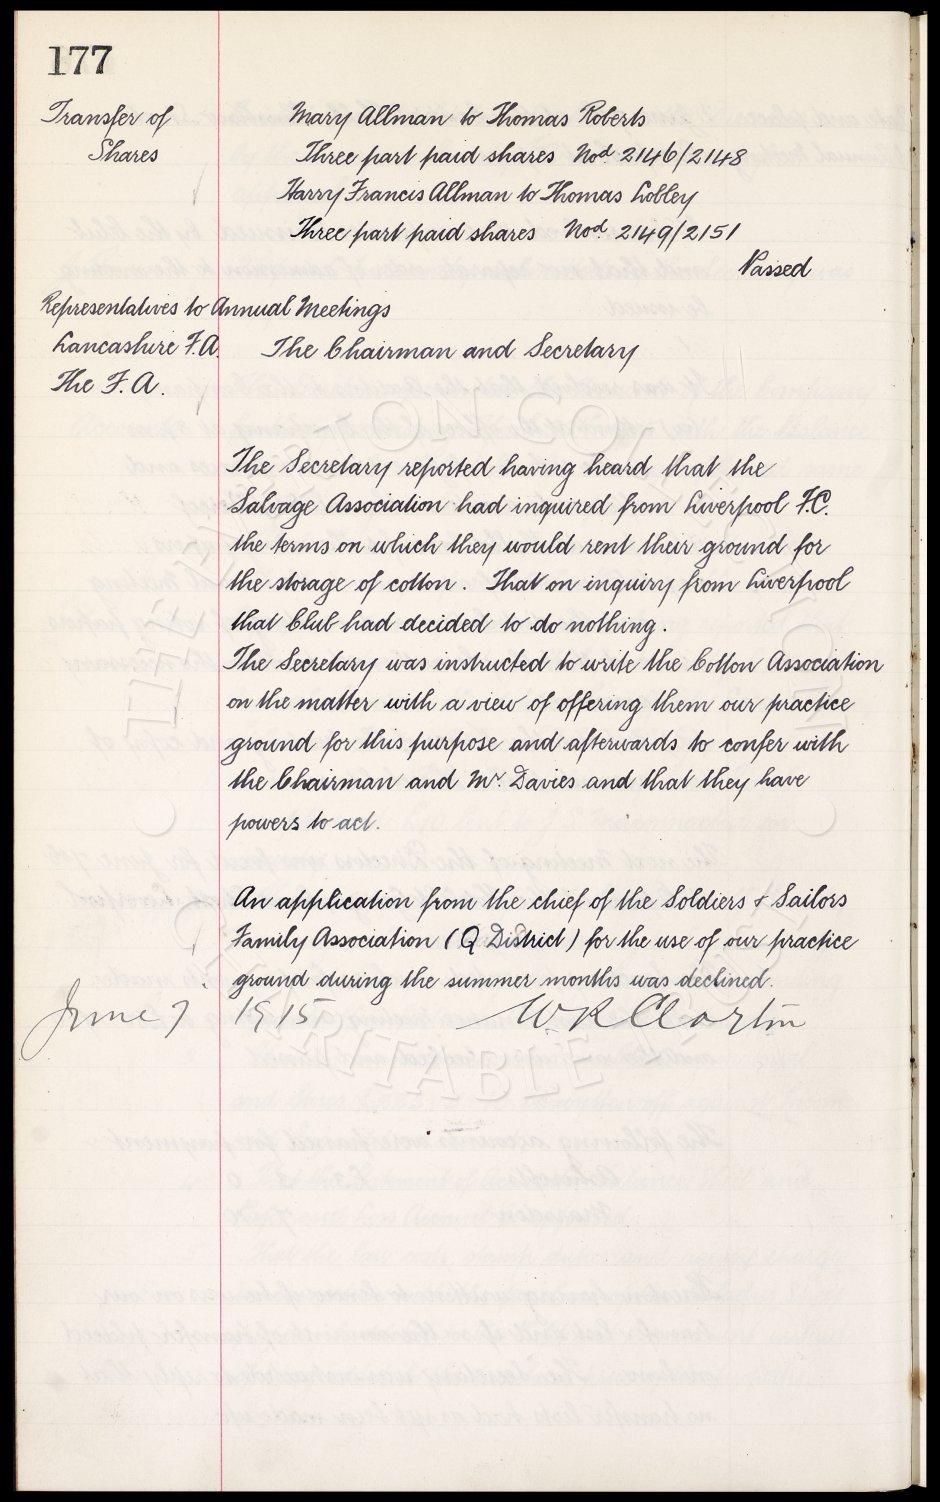 177
Transfer of Mary Allman to Thomas Roberts
Shares Three part paid shares Nod. 2146/2148
Harry Francis Allman to Thomas Lobley
Three part paid shares Nod. 2149/2151
Passed
Representatives to Annual Meetings
Lancashire F.A. The Chairman and Secretary
The F.A.
The Secretary reported having heard that the
Salvage Association had inquired from Liverpool F.C.
the terms on which they would rent their ground for
the storage of cotton. That on inquiry from Liverpool
that Club had decided to do nothing.
The Secretary was instructed to write the Cotton Association
on the matter with a view of offering them our practice
ground for this purpose and afterwards to confer with
the Chairman and Mr. Davies and that they have
powers to act.
An application from the chief of the Soldiers & Sailors
Family Association (Q District) for the use of our practice
ground during the summer months was declined.
June 7 1915 W R Clayton